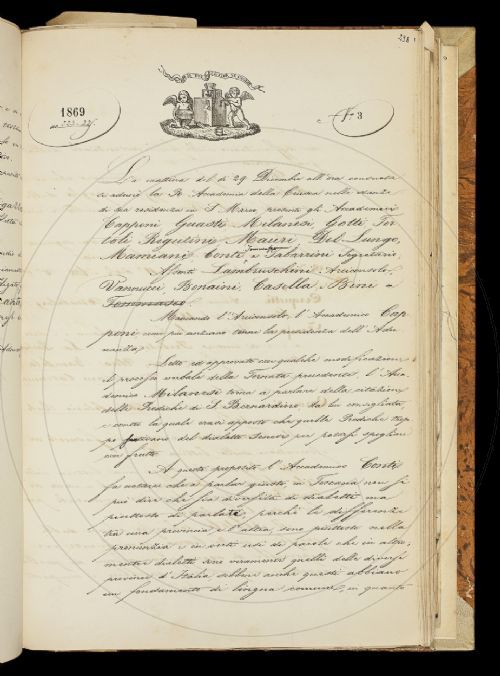 238
1869
N° 3
La mattina del dì 29 Dicembre all'ora consueta
si adunò la R. Accademia della Crusca nelle stanze
di sua residenza in S. Marco presenti gli Accademici
Capponi Guasti Milanesi Gotti Fer
coli Rigutini Mauri Del Lungo,
Tommaseo
Mamiani Conti e Tabarrini Segretario.
Assenti Lambruschini Arciconsolo,
Vannucci Bonaini, Casella, Bini e
Tommaseo
Mancando l'Arciconsolo, l'Accademico Cap
poni come più anziano tenne la presidenza dell'Adu
nanza.
Letto ed approvato con qualche modificazione
il processo verbale della Tornata precedente, l'Acca
demico Milanesi torna a parlare della citazione
delle Prediche di S. Bernardino da lui consigliata
e contro la quale erasi apposto che quelle Prediche trop
po del dialetto Senese per potersi spogliare
con frutto.
A questo proposito l'Accademico Conti
fa notare che a parlar giusto, in Toscana non si
può dire che sia diversità di dialetti ma
piuttosto di parlate, perchè le differenze
tra una provincia e l'altra, sono piuttosto nella
pronunzia e in certi usi di parole che in altro;
mentre dialetti sono veramente quelli delle diverse
provincie d'Italia sebbene anche questi abbiano
un fondamento di lingua comune, in quanto